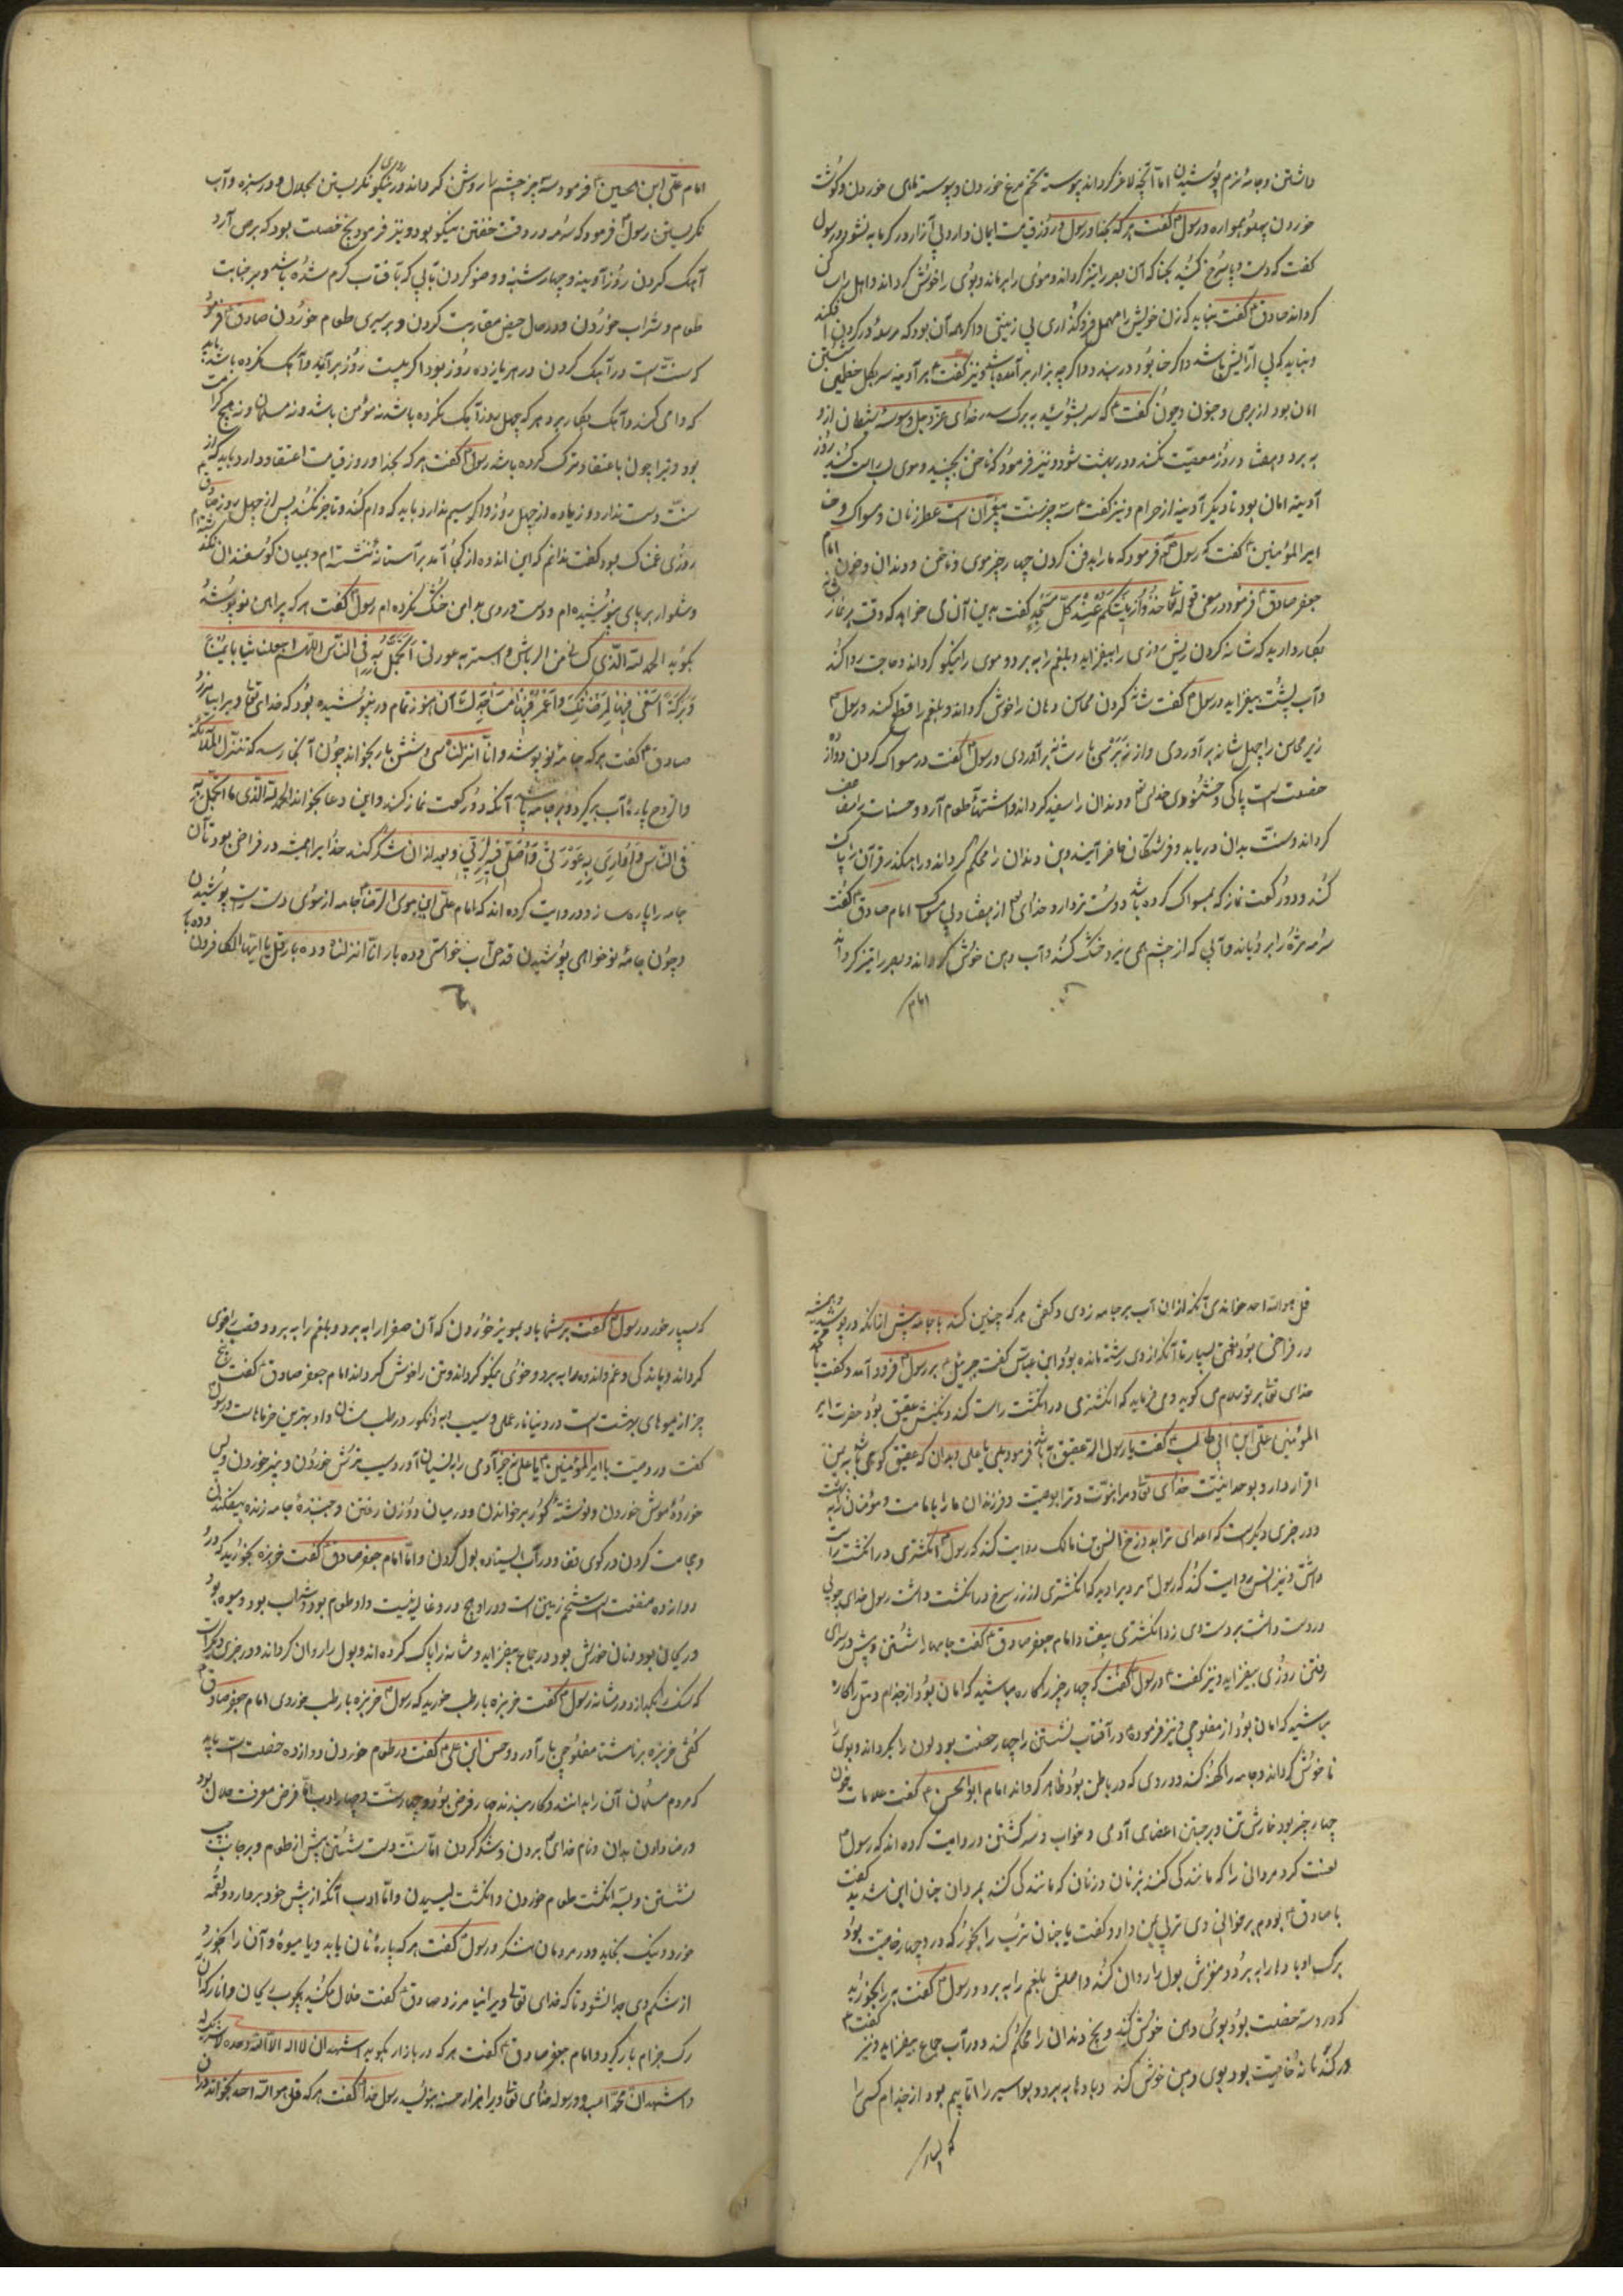 داشتن و جامهٔ نرم پوشیدن اما آنچه لاغر کرداند پیوسته تخم مرغ خوردن و پیوسته ماهی خوردن و کوشت
خوردن پهلو همواره و رسول گفت هر که بخدا و رسول و روز قیامت ایمان دارد بی ازار در کرمابه نشود و رسول
گفت که دست و پا سرخ کنید بحنا که آن بصر را تیز کرداند و موی را برماند و بوی را خوش کرداند و اهل را ساکن
کرداند صادق گفت نباید که زن خویش را مهمل فروکذاری بی زینتی
و نباید که بی آرایش باشد و اگر حنا بود در بندد و اگر چه بزاد برآمده باشد و نیز گفت هر آدینه سر بکل خطمی شستن
امان بود از برص و جنون و چون گفت که سر بشوئید به برک سدر خدای عز و جل وسوسهٔ شیطان ازو
به برد و هفتاد روز معصیت نکند و در بهشت شود و نیز فرمود که ناخن بچینید و موی لب راست کنید روز
آدینه امان بود تا دیگر آدینه از جرام و نیز گفت سه چیز سنت پیغمبران است عطر زنان و مسواک و حنا
امیر المؤمنین گفت که رسول فرمود که ما را بدفن کردن چهار چیز موی و ناخن و دندان و خون امام
جعفر صادق فرمود در معنی قوله تعا خُذُوا زِینَتَکُم عِندَ کُلِّ مَسجِدٍ گفت بدین آن می خواهد که وقت هر نماز
بکار دارید که شانه کردن ریش روزی را بیفزاید و بلغم را به برد و موی را نیکو کرداند و حاجت روا کند
و آب پشت بیفزاید و رسول گفت شانه کردن محاسن دهان را خوش کرداند و بلغم را قطع کند و رسول
زیر محاسن را چهل شانه برآوردی و از زبر برآوردی و رسول گفت در مسواک کردن دوازده
خصلت است پاکی و خشنودی خدای و دندان را سفید کرداند و اشتهاء طعام آرد و حسنات مضاعف
کرداند و سنت بدان دریابد و فرشتکان حاضر آیند و بن دندان را محکم کرداند و راهکذر قرآن را پاک
کند و دو رکعت نماز که بمسواک کرده باشد دوست تر دارد خدای از هفتاد بی مسواک امام صادق گفت
سرمه مژه را برویاند و آبی که از چشم همی ریزد خشک کند و آب دهن خوش کرداند و بصر را تیز کرداند
امام
امام علی ابن الحسین فرمود سه چیز چشم را روشن کرداند در روی نیکو نکریستن بحلال و در سبزه و آب
نکریستن رسول فرمود که سرمه در وقت خفتن نیکو بود و نیز فرمود پنج خصلت بود که برص آرد
آهک کردن روز آدینه و چهارشنبه و وضو کردن بآبی که بآفتاب کرم شده باشد و بر جنابت
طعام و شراب خوردن و در حال حیض مقاربت کردن و بر سیری طعام خوردن صادق فرمود
که سنت است در آهک کردن در هر پانزده روز بود اکر بیست روز برآید و آهک نکرده باشد باید
که وامی کند و آهک بکار برد و هر که چهل روز آهک نکرده باشد نه مؤمن باشد و نه مسلمان و نه هیچ کرامت
بود ویرا چون با اعتقاد ترک کرده باشد رسول گفت هر که بخدا و روز قیامت اعتقاد دارد باید که این
سنت دست ندارد و زیاده از چهل روز و اکر سیم ندارد باید که وام کند و تاخیر نکند پس از چهل روز صادق
روزی غمناک بود گفت ندانم که این اندوه از کجا آمد بر آستانه ننشسته ام و بمیان کوسفندان نکذشته
و شلوار بر پای نپوشیده ام و دست و روی بدامن خشک نکرده ام رسول گفت هر که پیراهن نو پوشد
بکوید الحمد لله الذی کسانی من الریاش و استر به عورتی اتجمل به فی الناس اللهم اجعلنا ثیابا یمن
وَ بَرَکَةٍ اَسعٰی فیها لِمَرضاتِک وَ اَعمُرُ فیها مَساجِدَک آن هنوز تمام درنپوشیده بود که خدای تعا ویرا بیامرزد
صادق گفت هر که جامهٔ نو پوشد و انّا انزلناه سی و شش بار بخواند چون آنجا رسد که تنزل الملائکة
و الروح پارهٔ آب برکیرد و بر جامه پاشد آنکه دو رکعت نماز کند و این دعا بخواند الحمد لله الذی ما اتجمل به
فی الناس و اواری به عورتی و اصلی فیه لربی و بعد از آن شکر کند خدا را همیشه در فراخی بود تا آن
جامه را پاره سازد و روایت کرده اند که امام علی ابن موسی الرضا جامه از سوی دست راست پوشیدن
و چون جامهٔ نو خواهی پوشیدن قدحی آب خواستی و ده بار انّا انزلناه و ده بار قل یا ایها الکافرون و ده بار
قل هو الله احد خواندی آنکه از ان آب بر جامه زدی و کفتی هر که چنین کند با جامه پیش از آنکه درپوشد همیشه
در فراخی بود نعمتی بسیار تا آنکه از وی رشته مانده بود و ابن عباس گفت جبرئیل بر رسول فرود آمد و گفت یا محمد
خدای تعا بر تو سلام می کوید و می فرماید که انکشتری در انکشت راست کند و نکینش عقیق بود حضرت امیر
المؤمنین علی ابن ابی طالب گفت یا رسول الله عقیق چه باشد فرمود بلی یا علی بدان که عقیق کوهی باشد به یمن
اقرار دارد بوحدانیت خدای تعا و مرا بنبوت و ترا بوصیت و فرزندان ما را بامامت و مؤمنان را به بهشت
و در خبری دیکر است که اعدای ترا به دوزخ انس بن مالک روایت کند که رسول انکشتری در انکشت راست
داشتی و نیز انس روایت کند که رسول مردی را دید که انکشتری از زر سرخ در انکشت داشت رسول خدای چوبی
در دست داشت بر دست وی زد انکشتری بیفتاد امام جعفر صادق گفت جامها را شستن و پیش در سرای
رفتن روزی بیفزاید و نیز گفت و رسول گفت که چهار چیز را کاره مباشید که امان بود از جذام و دمل را کاره
مباشید که امان بود از مفلوجی و نیز فرموده در آفتاب نشستن را چهار خصلت بود لون را بکرداند و بوی را
ناخوش کرداند و جامه را کهنه کند و دردی که در باطن بود ظاهر کرداند امام ابو الحسن گفت علامات خون
چهار چیز بود خارش تن و برجستن اعضای آدمی و خواب و سر کشتن و روایت کرده اند که رسول
لعنت کرد مردانی را که مانندکی کنند بزنان و زنان که مانندکی کنند بمردان حنان ابن سدید گفت
با صادق بودم بر خوانی وی تربی بمن داد و گفت یا حنان ترب را بخور که درو چهار خاصیت بود
برک او بادها را به برد و مغزش بول را روان کند و اصلش بلغم را به برد و رسول گفت به را بخورید
که درو سه خصلت بود بوی دهن خوش کند و بیخ دندان را محکم کند و در آب جماع بیفزاید و نیز گفت
در کندنا نه خاصیت بود بوی دهن خوش کند و بادها به برد و بواسیر را اما بیم بود از جذام کسی را
که بسیار
که بسیار خورد و رسول گفت بر شما باد بمویز خوردن که آن صفرا را به برد و بلغم را به برد و عصب را قوی
کرداند و ماندکی و غم و اندوه را به برد و خوی نیکو کرداند و تن را خوش کرداند امام جعفر صادق گفت پنج
چیز از میوهای بهشت است در دنیا نار ملسی و سیب و به و انکور و رطب مشان و او بهترین خرماهاست و رسول
گفت در وصیت با امیر المؤمنین یا علی نه چیز آدمی را بنسیان آورد سیب ترش خوردن و پنیر خوردن و پس
خوردهٔ موش خوردن و نوشتهٔ کور بر خواندن و در میان دو زن رفتن و جنبندهٔ جامه زنده بیفکندن
و حجامت کردن در کوی قفا و در آب ایستاده بول کردن و امّا امام جعفر صادق گفت خربزه بخورید که درو
دوازده منفعت است شحم زمین است و در او هیچ درد و غایله نیست و او طعام بود و شراب بود و میوه بود
و ریحان بود و نان خورش بود و در جماع بیفزاید و مثانه را پاک کرده اند و بول را روان کرداند و در خبری دیکر است
که سنک را بکدازد در مثانه رسول گفت خربزه با رطب خورید که رسول خربزه با رطب خوردی امام جعفر صادق
کفتی خربزه بر ناشتا مفلوجی بار آورد و حسن ابن علی گفت در طعام خوردن دوازده خصلت است باید
که مردم مسلمان آن را بدانند و کار بندند چهار فرض بود و چهار سنت و چهار ادب امّا فرض معرفت حلال بود
و رضا دادن بدان و نام خدای بردن و شکر کردن امّا سنت دست شستن پیش از طعام و بر جانب چپ
نشستن و بسه انکشت طعام خوردن و انکشت لیسیدن و امّا ادب آنکه از پیش خود بردارد و لقمه
خورد و نیک بخاید و در مردمان ننکرد و رسول گفت هر که پارهٔ نان یابد و یا میوهٔ و آن را بخورد
از شکم وی جدا نشود تا که خدای تعالی ویرا بیامرزد و صادق گفت خلال مکنید بچوب ریحان و انار که آن
رک جذام بار کیرد و امام جعفر صادق گفت هر که در بازار بکوید اشهد ان لا اله الا الله وحده لا شریک له
و اشهد ان محمدا عبده و رسوله خدای تعا ویرا هزار حسنه بنویسد رسول خدا گفت هر که قل هو الله احد بخواند در آن